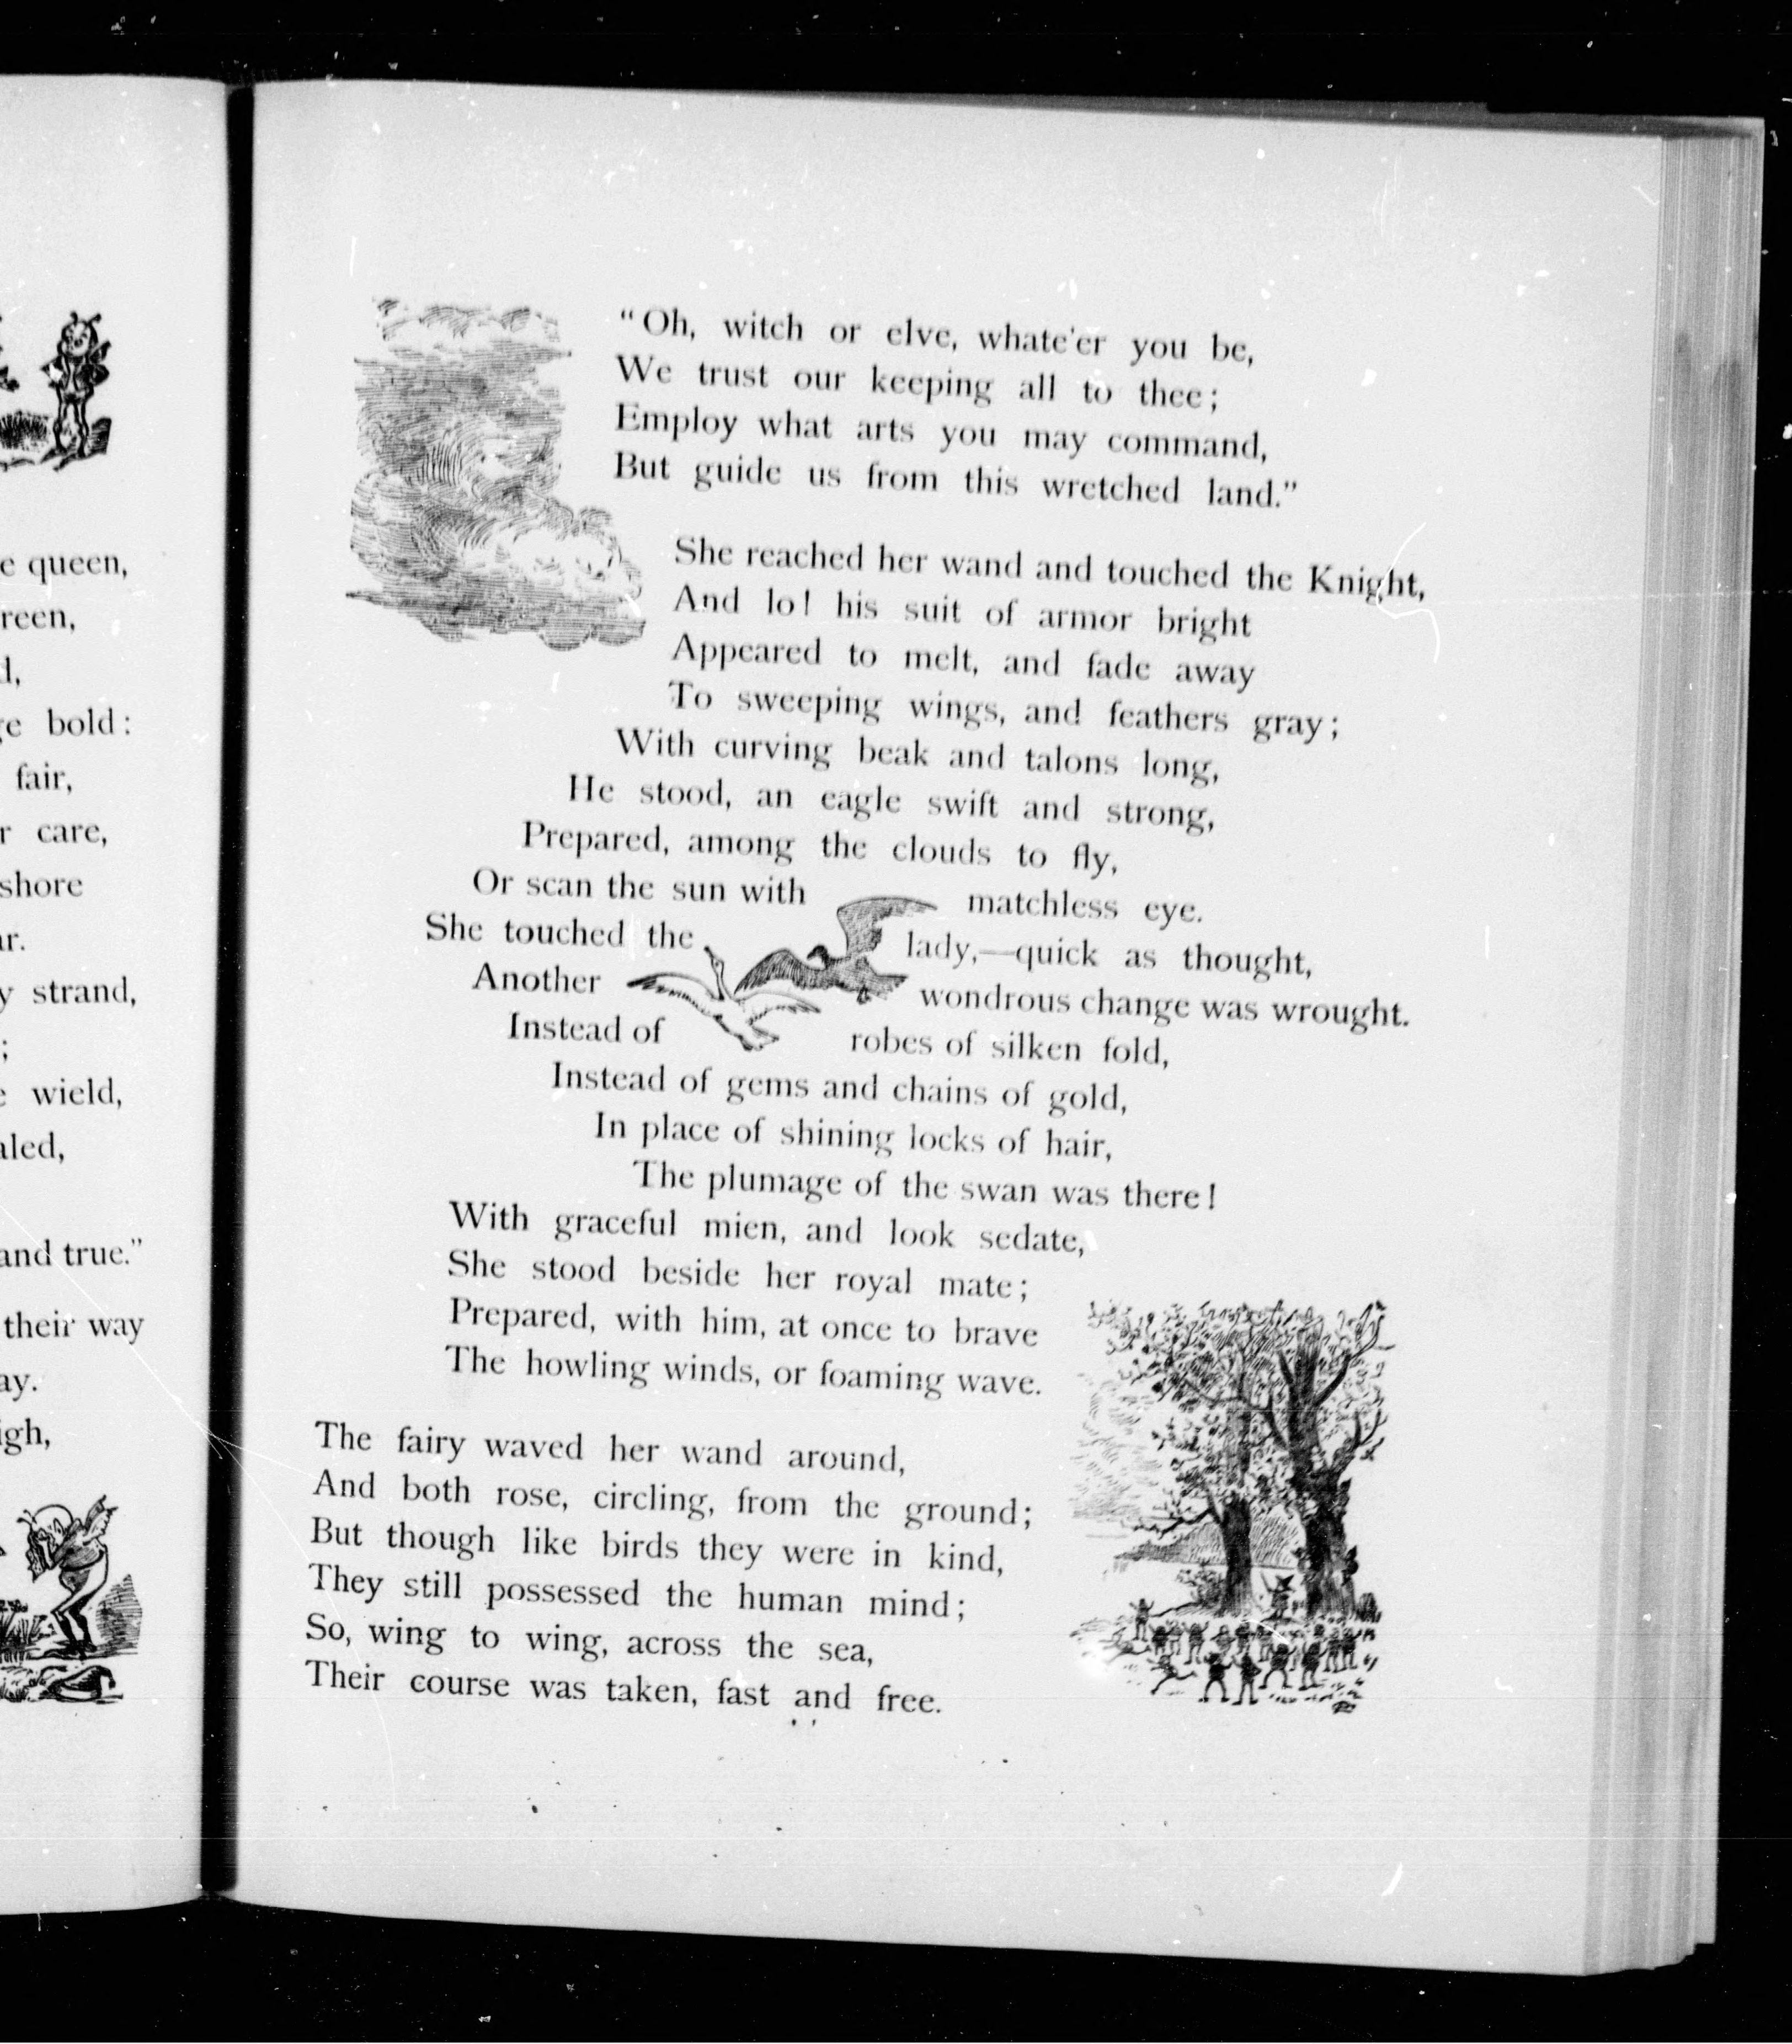 e queen,
reen,
d,
ge bold:
fair,
r care,
shore
ar.
y strand,
;
e wield,
aled,
and true."
their way
ay.
igh,
"Oh, witch or elve, whate'er you be,
We trust our keeping all to thee;
Employ what arts you may command,
But guide us from this wretched land."
She reached her wand and touched the Knight,
And lo! his suit of armor bright
Appeared to melt, and fade away
To sweeping wings, and feathers gray;
With curving beak and talons long,
He stood, an eagle swift and strong,
Prepared, among the clouds to fly,
Or scan the sun with matchless eye.
She touched the lady,—quick as thought,
Another wondrous change was wrought.
Instead of robes of silken fold,
Instead of gems and chains of gold,
In place of shining locks of hair,
The plumage of the swan was there!
With graceful mien, and look sedate,
She stood beside her royal mate;
Prepared, with him, at once to brave
The howling winds, or foaming wave.
The fairy waved her wand around,
And both rose, circling, from the ground;
But though like birds they were in kind,
They still possessed the human mind;
So, wing to wing, across the sea,
Their course was taken, fast and free.